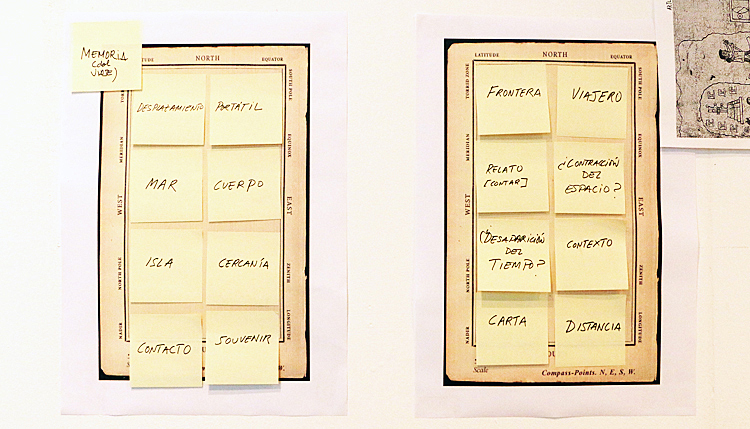 MEMORIA
(del
VIAJE)
TUDE
NORTH
EQUATOR
TORRID
SOUTH POLE
MERIDIAN
EQUINOX
WEST
EAST
NORTH POLE
ZENITH
NADIR
LONGITUDE
DESPLAZAMIENTO
PORTÁTIL
MAR
CUERPO
ISLA
CERCANÍA
CONTACTO
SOUVENIR
S, W.
LATITUDE
NORTH
EQUATOR
TORRID ZONE
SOUTH POLE
MERIDIAN
EQUINOX
WEST
EAST
NORTH POLE
ZENITH
NADIR
LONGITUDE
FRONTERA
VIAJERO
RELATO
[CONTAR]
¿CONTRACCIÓN
DEL
ESPACIO?
¿DESAPARICIÓN
DEL
TIEMPO?
CONTEXTO
CARTA
DISTANCIA
Scale
Compass-Points. N, E, S, W.